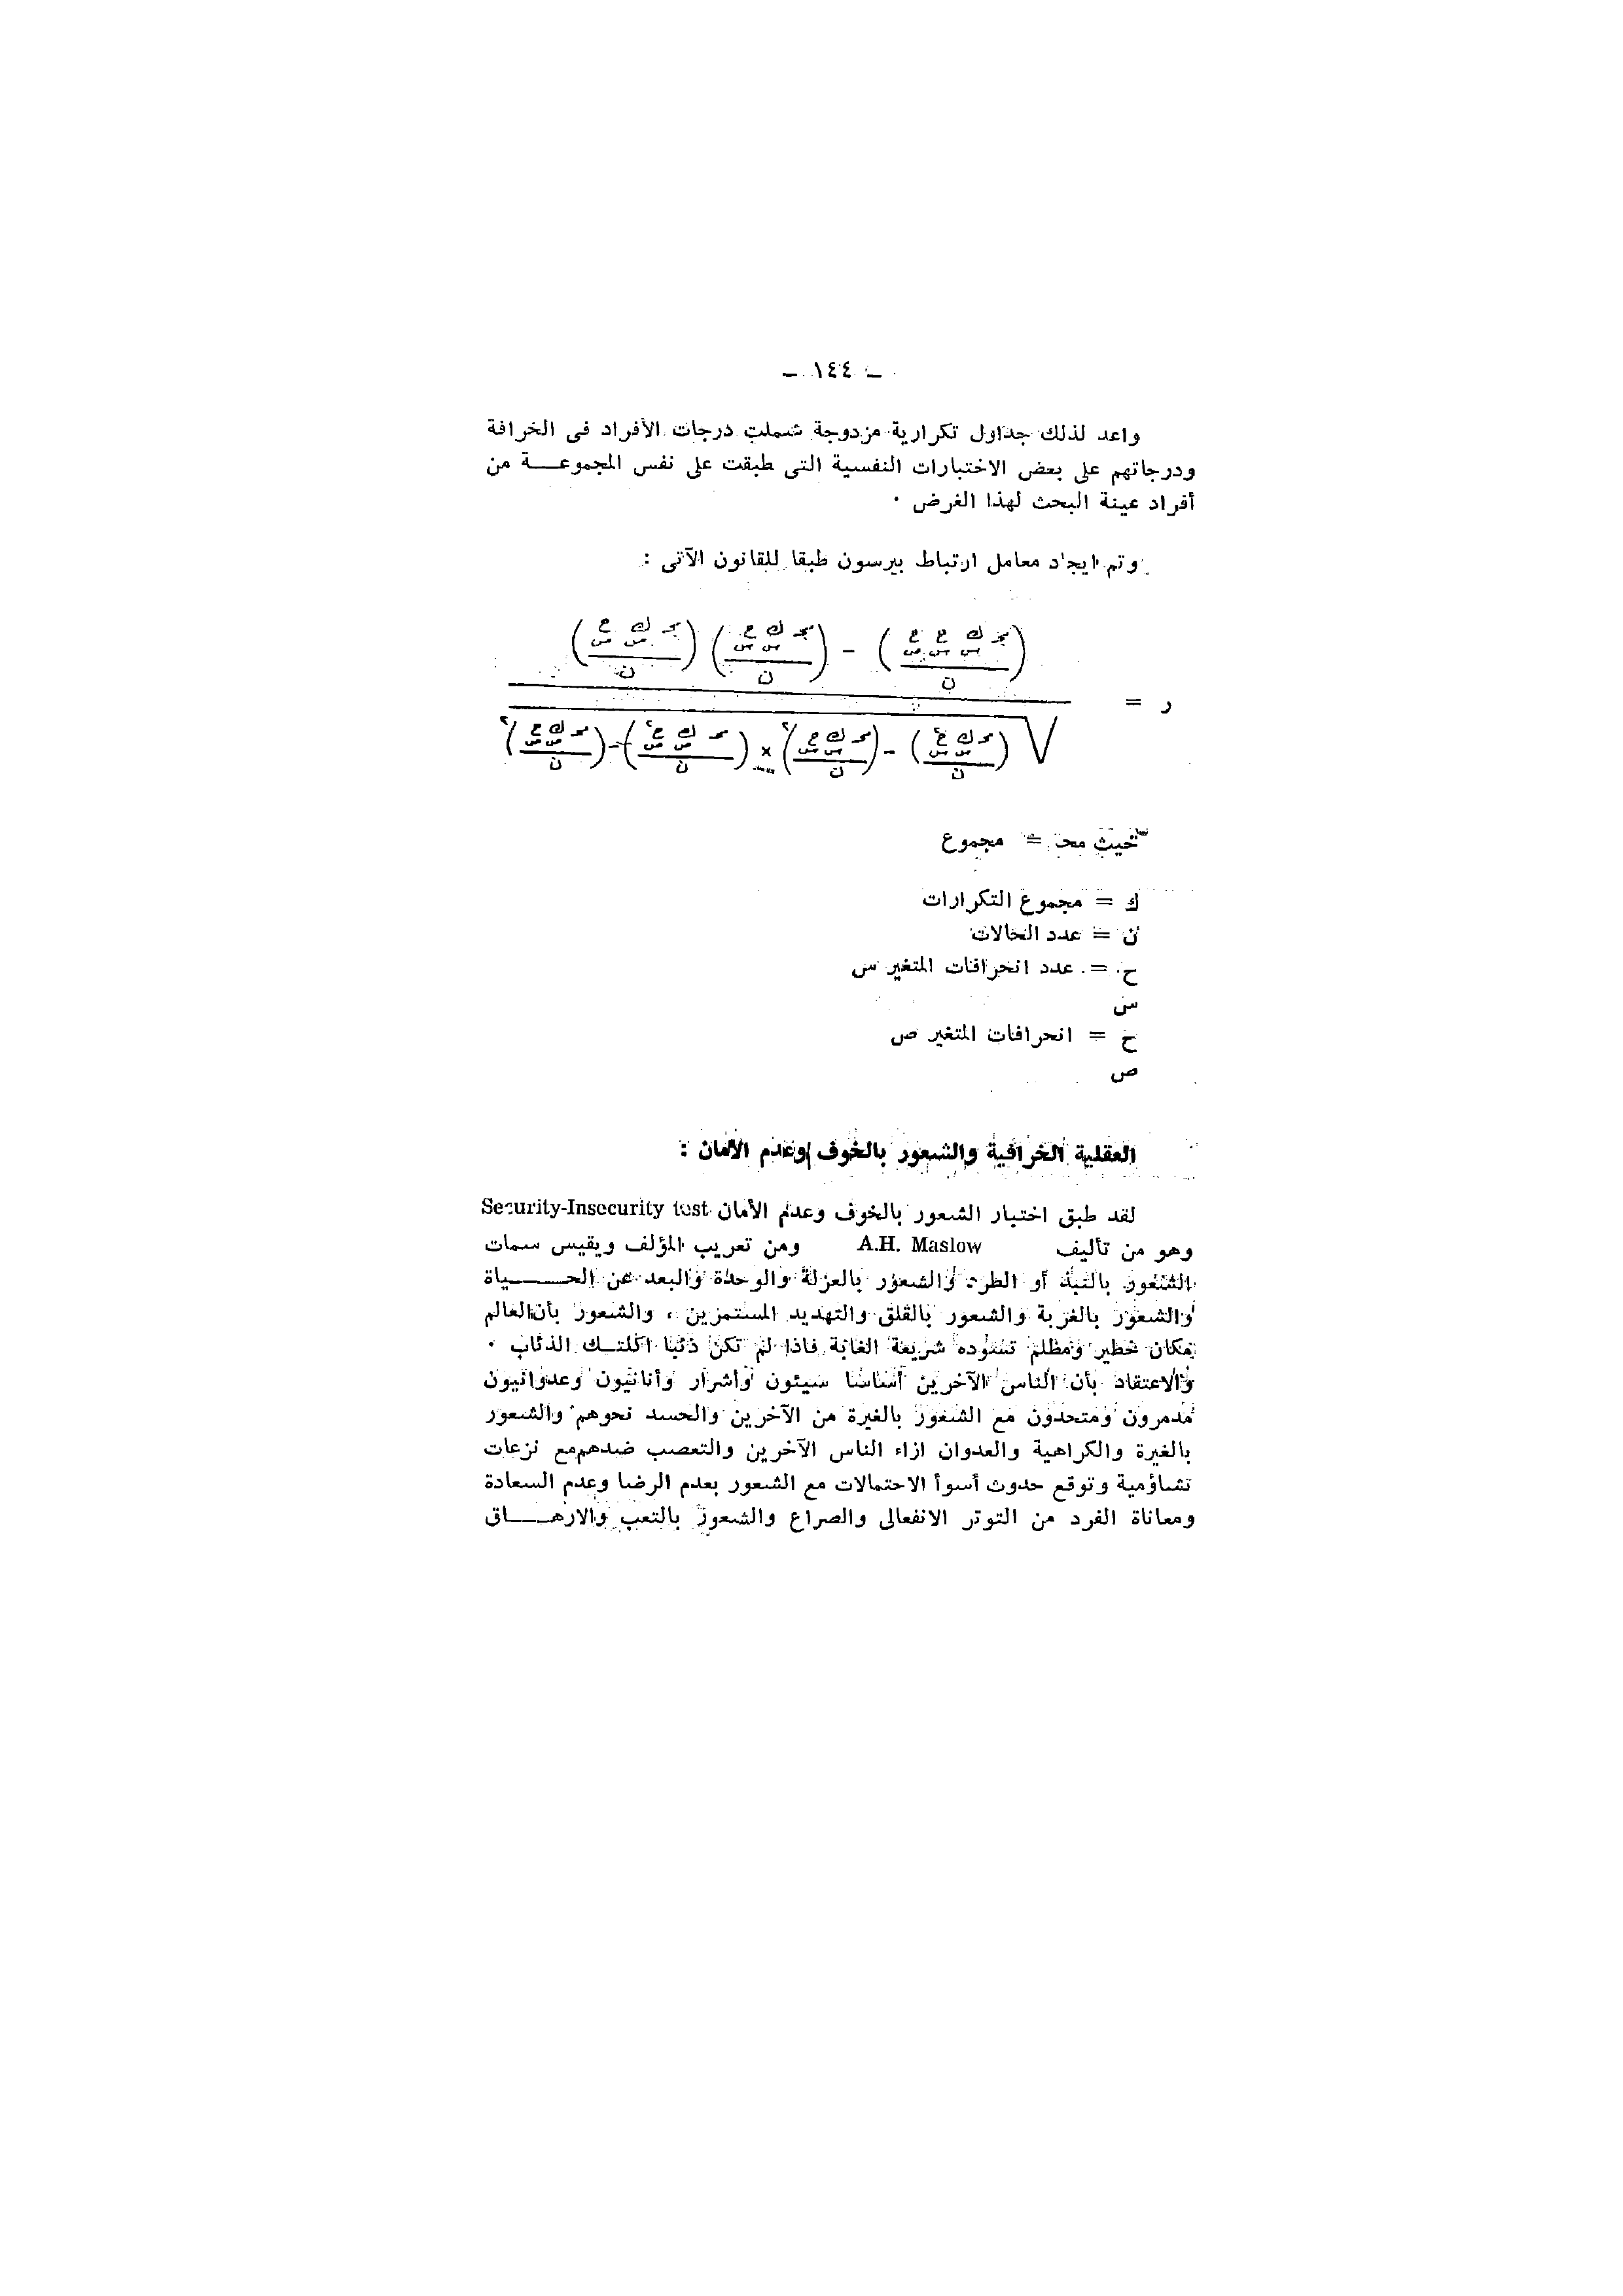 – ١٤٤ –
واعد لذلك جداول تكرارية مزدوجة شملت درجات الأفراد فى الخرافة
ودرجاتهم على بعض الاختبارات النفسية التى طبقت على نفس المجموعـــة من
أفراد عينة البحث لهذا الغرض ٠
وتم ايجاد معامل ارتباط بيرسون طبقا للقانون الآتى :
ر =
حيث مجـ = مجموع
ك = مجموع التكرارات
ن = عدد الحالات
ح = عدد انحرافات المتغير س
س
ح = انحرافات المتغير ص
ص
العقلية الخرافية والشعور بالخوف وعدم الأمان :
لقد طبق اختبار الشعور بالخوف وعدم الأمان Security-Insecurity test
وهو من تأليف A.H. Maslow ومن تعريب المؤلف ويقيس سمات
الشعور بالنبذ أو الطرد والشعور بالعزلة والوحدة والبعد عن الحـــــياة
والشعور بالغربة والشعور بالقلق والتهديد المستمرين ، والشعور بأن العالم
مكان خطير ومظلم تسوده شريعة الغابة فاذا لم تكن ذئبا اكلتـــك الذئاب ٠
والاعتقاد بأن الناس الآخرين أساسا سيئون وأشرار وأنانيون وعدوانيون
مدمرون ومتحدون مع الشعور بالغيرة من الآخرين والحسد نحوهم والشعور
بالغيرة والكراهية والعدوان ازاء الناس الآخرين والتعصب ضدهم مع نزعات
تشاؤمية وتوقع حدوث أسوأ الاحتمالات مع الشعور بعدم الرضا وعدم السعادة
ومعاناة الفرد من التوتر الانفعالى والصراع والشعور بالتعب والارهـــــاق